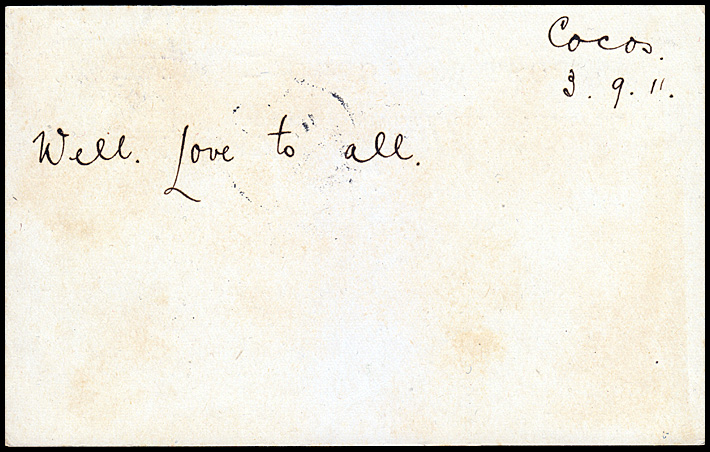 Cocos.
3. 9. 11.
Well. Love to all.